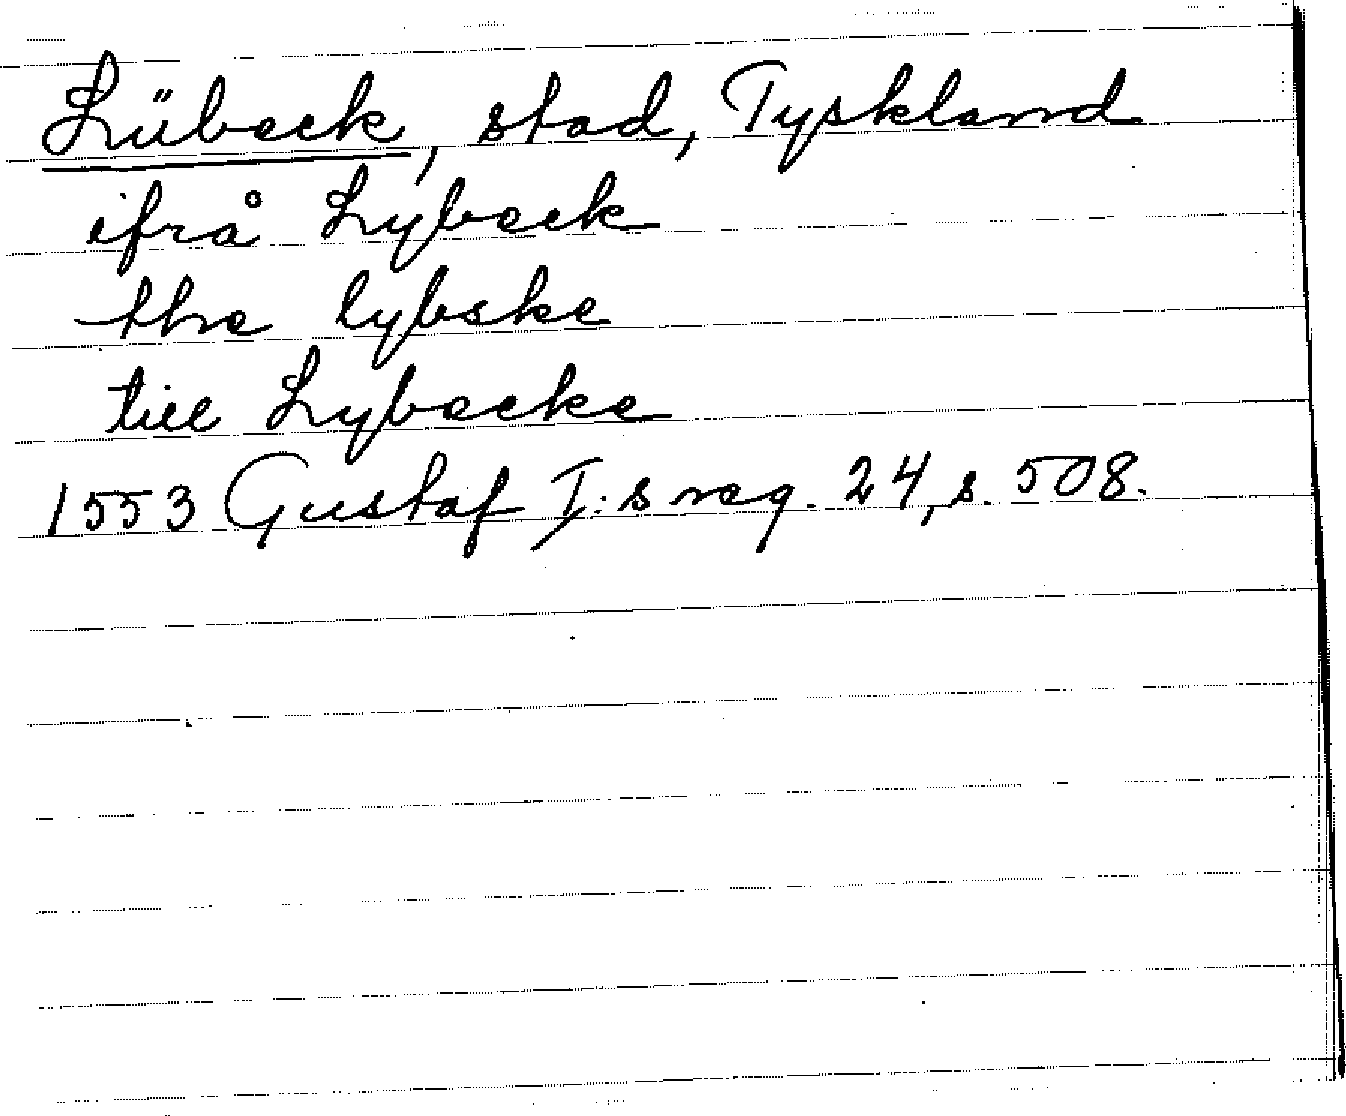 Lübeck, stad, Tyskland
ifrå Lybeck
the lybske
till Lybecke
1553 Gustaf I:s reg. 24, s. 508.